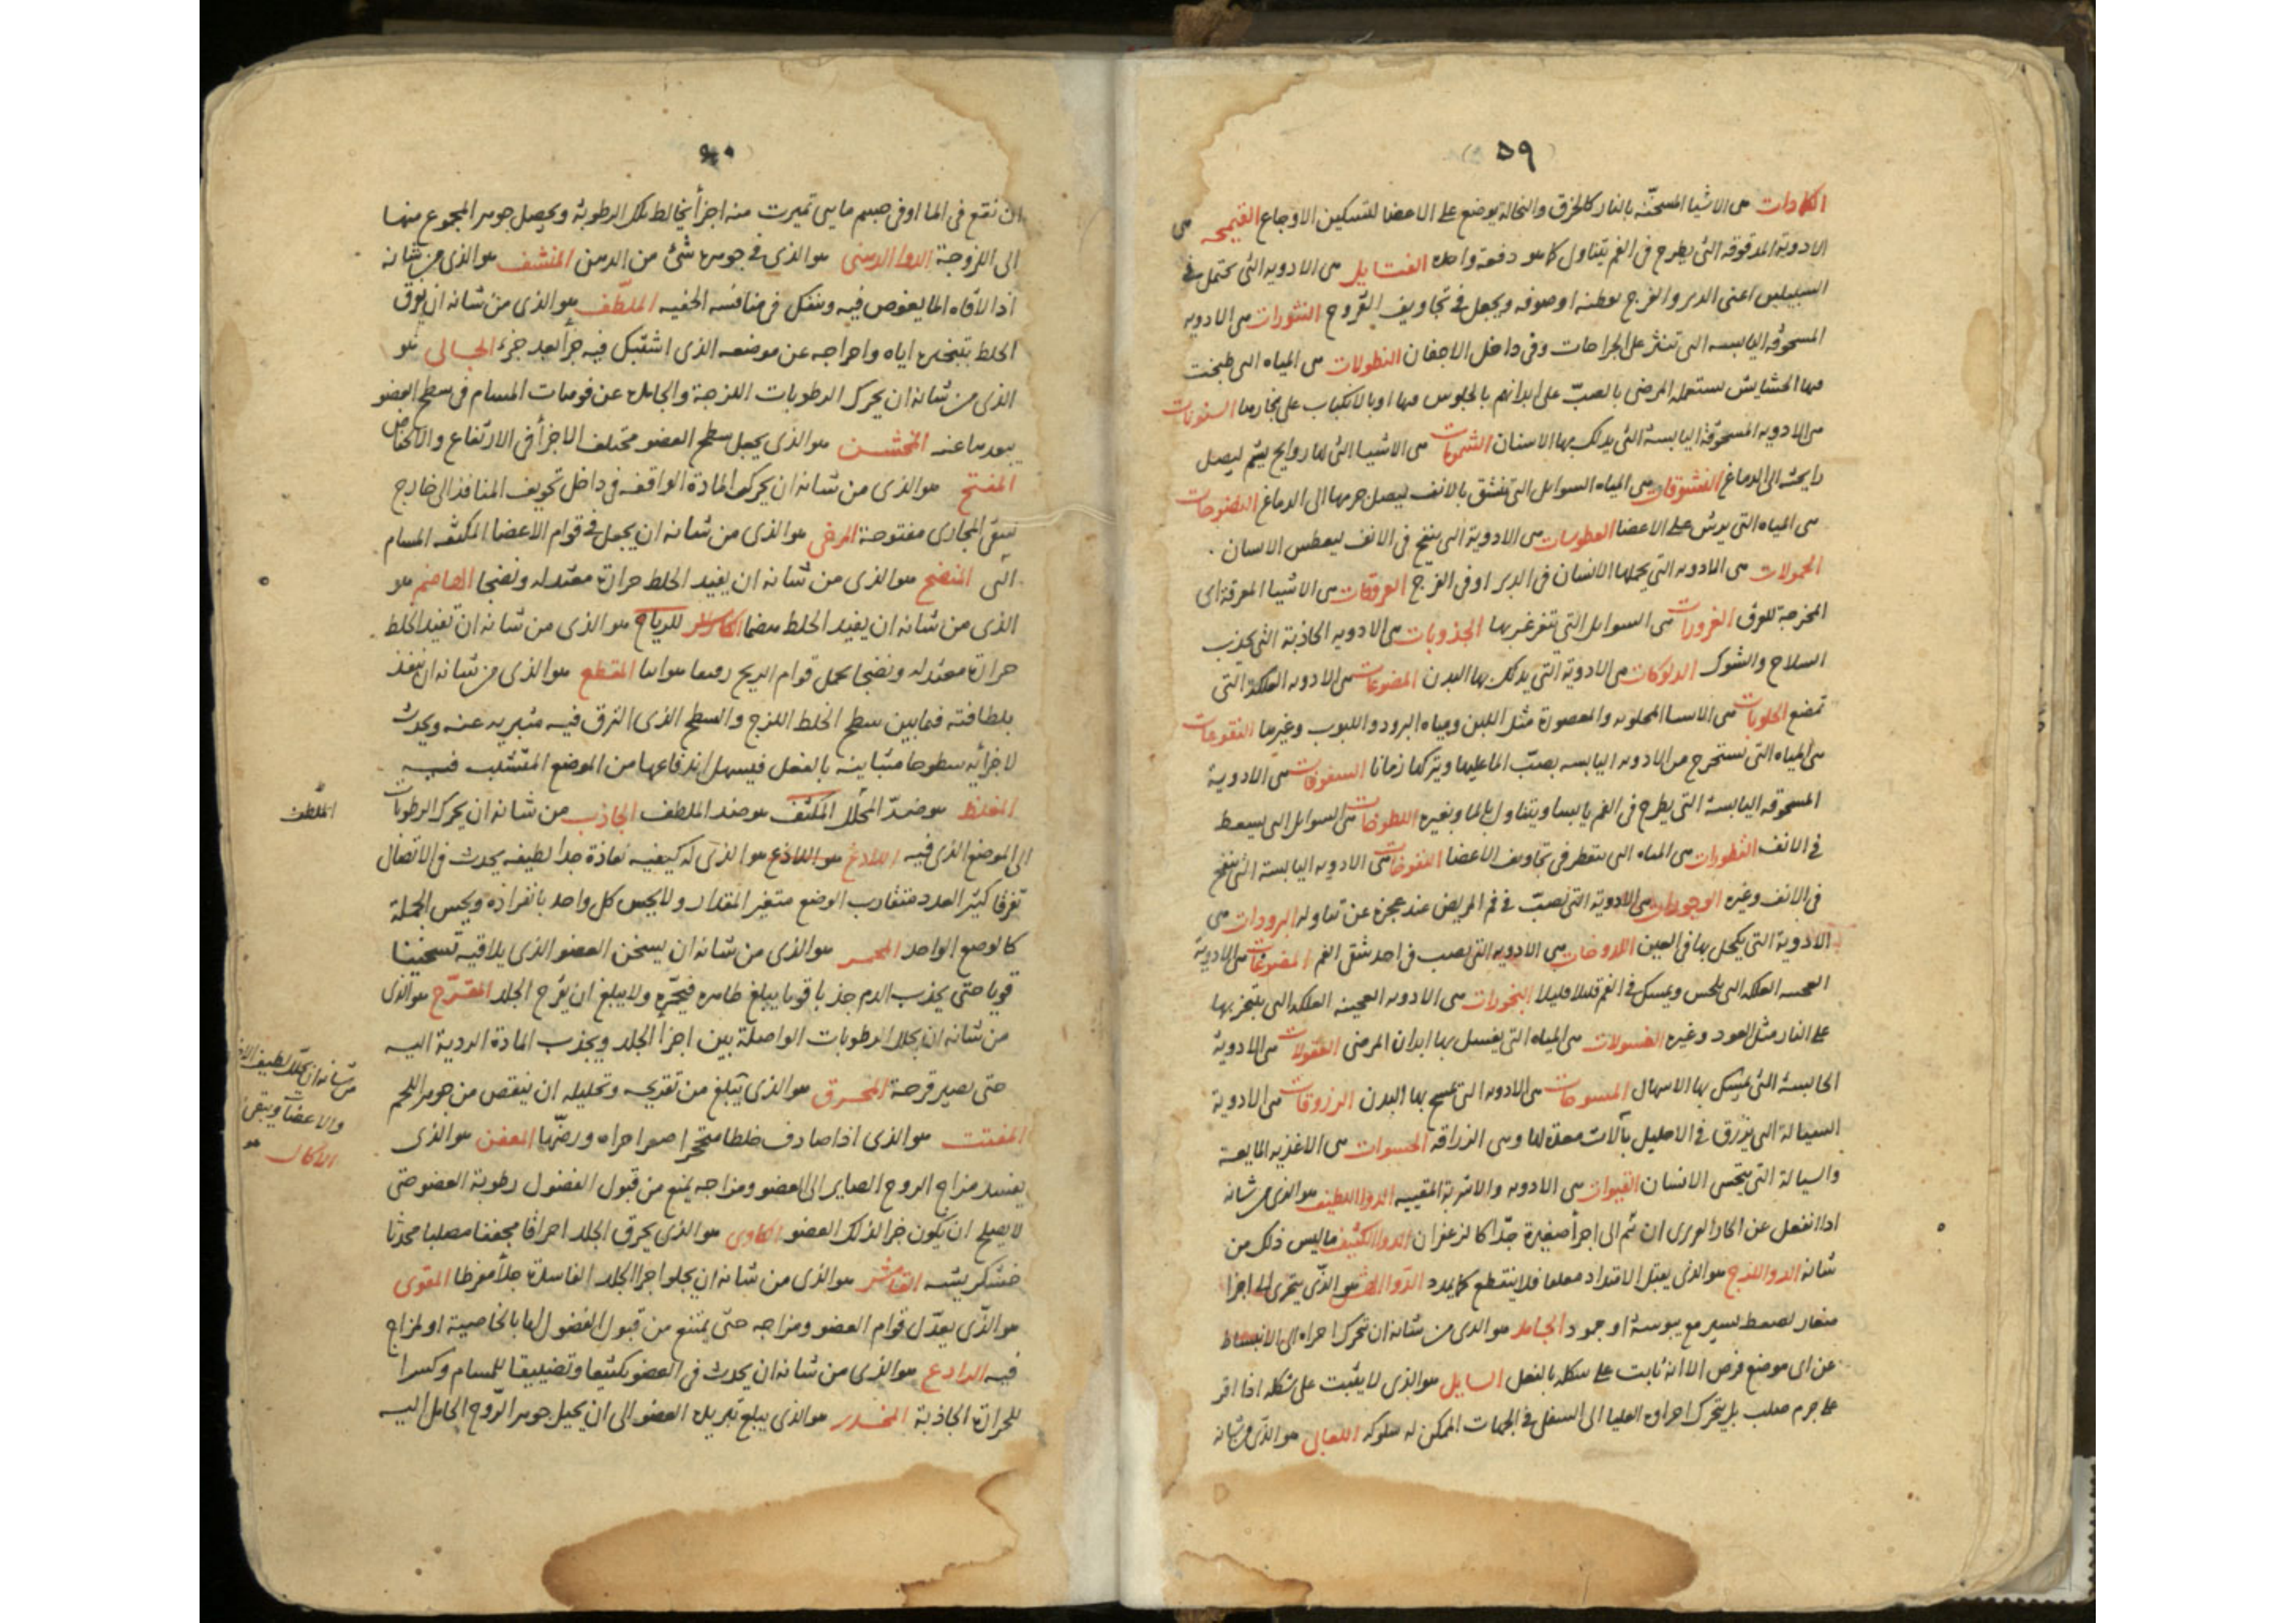 ٥٩
الكمادات هى الاشيا المسخنة بالنار كالخرق والنخالة يوضع على الاعضا لتسكين الاوجاع القميحه هى
الادوية المدقوقه التى يطرح فى الفم يتناول كما هو دفعة واحدة الفتايل هى الادويه التى يحتمل فى
السبيلين اعنى الدبر والفرج بقطنه او صوفه ويجعل فى تجاويف القروح النثورات هى الادويه
المسحوقه اليابسه التى تنثر على الجراحات وفى داخل الاجفان النطولات هى المياه التى طبخت
فيها الحشايش يستعمله المرضى بالصبّ على ابدانهم بالجلوس فيها او بالانكباب على بخارها السنونات
هى الادويه المسحوقة اليابسة التى يدلك بها الاسنان الشمومات هى الاشيا التى لها روايح يشم ليصل
رايحته الى الدماغ النشوقات هى المياه السوايل التى ينشق بالانف ليصل جرمها الى الدماغ النضوحات
هى المياه التى يرش على الاعضا العطوسات هى الادوية التى ينفخ فى الانف ليعطس الانسان
الحمولات هى الادويه التى يحملها الانسان فى الدبر او فى الفرج العروقات هى الاشيا المعرقة اى
المخرجة للعرق الغرورات هى السوايل التى يتغرغر بها الجذوبات هى الادويه الجاذبة التى يجذب
السلاح والشوك الدلوكات هى الادوية التى يدلك بها البدن المضوغات هى الادويه العلكة التى
تمضغ الحلوبات هى الاشيا المحلوبه والمعصورة مثل اللبن ومياه البرود واللبوب وغيرها النقوعات
هى المياه التى يستخرج من الادويه اليابسه بصبّ الما عليها ويتركها زمانا السفوفات هى الادوية
المسحوقه اليابسة التى يطرح فى الفم يابسا ويتناول بالما وبغيره السعوطات هى السوايل التى يسعط
فى الانف القطورات هى المياه التى يقطر فى تجاويف الاعضا النفوخات هى الادويه اليابسة التى ينفخ
فى الانف وغيره الوجورات هى الادوية التى تصبّ فى فم المريض عند عجزه عن تناوله البرودات هى
الادوية التى يكحل بها فى العين اللدودات هى الادويه التى يصب فى احد شقى الفم المضوغات هى الادوية
التى يلحس ويمسك فى الفم قليلا قليلا البخورات هى الادويه العجينه العلكة التى يتبخر بها
على النار مثل العود وغيره الغسولات هى المياه التى يغسل بها ابدان المرضى العقولات هى الادوية
الحابسة التى يمسك بها الاسهال المسوحات هى الادويه التى يمسح بها البدن الزروقات هى الادوية
السيالة التى يزرق فى الاحليل بآلات معدة لها وهى الزراقه الحسوات هى الاغذيه المايعة
والسيالة التى يتحسى الانسان القيوات هى الادويه والاشربة المقييه الدوا اللطيف هو الذى من شانه
اذا انفعل عن الحار الغريزى ان ينقسم الى اجزأ صغيرة جدّا كالزعفران الدوا الكثيف ما ليس ذلك من
شانه الدوا اللزج هو الذى يقبل الامتداد معلقا فلا ينقطع كما يمدد الدّوا الهش هو الذّى يتجزى الى اجزا
صغار بضغط يسير مع يبوسة او جمود الجامد هو الذى من شانه ان تتحرك اجزاه الى الانبساط
عن اى موضع فرض الا انه ثابت على شكله بالفعل السايل هو الذى لا يثبت على شكله اذا اقر
على جرم صلب بل يتحرك اجزاوه العليا الى السفلى فى الجهات الممكن له سلوكه اللعابى هو الذى من شانه
٦٠
ان نقع فى الما او فى جسم مايى تميزت منه اجزأ يخالط تلك الرطوبة ويحصل جوهر المجموع منها
الى اللزوجة الدوا الدهنى هو الذى فى جوهره شئ من الدهن المنشف هو الذى من شانه
اذا لاقاه الما يغوص فيه وينفذ فى منافسه الخفيه الملطّف هو الذى من شانه ان يرقق
الخلط بتبخيره اياه واخراجه عن موضعه الذى اشتبك فيه جزأ بعد جزء الجالى هو
الذى من شانه ان يحرك الرطوبات اللزجة والجامدة عن فوهات المسام فى سطح العضو
يبعدها عنه المخشن هو الذى يجعل سطح العضو مختلف الاجزأ فى الارتفاع والانخفاض
المفتح هو الذى من شانه ان يحرك المادة الواقفه فى داخل تجويف المنافذ الى خارج
فيبقى المجارى مفتوحة المرخى هو الذى من شانه ان يجعل فى قوام الاعضا المكثفه المسام
المنضج هو الذى من شانه ان يفيد الخلط حرارة معتدله ونضجا الهاضم هو
الذى من شانه ان يفيد الخلط هضما الكاسر للرياح هو الذى من شانه ان تفيد الخلط
حرارة معتدله ونضجا يجعل قوام الريح رقيقا هوائيا المقطع هو الذى من شانه ان ينفذ
بلطافته فيما بين سطح الخلط اللزج والسطح الذى التزق فيه فيبريه عنه ويحدث
لاجزأيه سطوحا متباينه بالفعل فيسهل اندفاعها من الموضع المتشبث فيه
المغلظ هو ضدّ المحلل المكثف هو ضد الملطف الجاذب من شانه ان يحرك الرطوبات
الى الموضع الذى فيه اللاذع هو الذى له كيفيه نفاذة جدا لطيفه يحدث فى الاتصال
تفرقا كثير العدد متقارب الوضع متغير المقدار ولا يحس كل واحد بانفراده ويحس الجملة
كالوضع الواحد المحمر هو الذى من شانه ان يسخن العضو الذى يلاقيه تسخينا
قويا حتى يجذب الدم جذبا قويا يبلغ ظاهره فيحمّره ولا يبلغ ان يقرح الجلد المقرّح هو الذى
من شانه ان يحلل الرطوبات الواصلة بين اجزا الجلد ويجذب المادة الردية اليه
حتى يصير قرحة المحرق هو الذى يبلغ من تقريحه وتحليله ان ينقص من جوهر اللحم
المفتت هو الذى اذا صادف خلطا متحجرا صغر اجزاه ورضّها المعفن هو الذى
يفسد مزاج الروح الصاير الى العضو ومزاجه يمنع من قبول الفضول رطوبة العضو حتى
لا يصلح ان يكون جزا لذلك العضو الكاوى هو الذى يحرق الجلد احراقا مجففا مصلبا محدثا
خشكريشه القاشر هو الذى من شانه ان يجلو اجزا الجلد الفاسدة جلأ مفرطا المقوى
هو الذّى يعدّل قوام العضو ومزاجه حتى يمتنع من قبول الفضول لها بالخاصية او لمزاج
فيه الرادع هو الذى من شانه ان يحدث فى العضو تكثيفا وتضييقا للمسام وكسرا
للحرارة الجاذبة المخدر هو الذى يبلغ تبريده العضو الى ان يحيل جوهر الرّوح الحامل اليه
الملطف
من شانه ان يحلل لطيف
والاعضأ ويبقى
الاكال هو